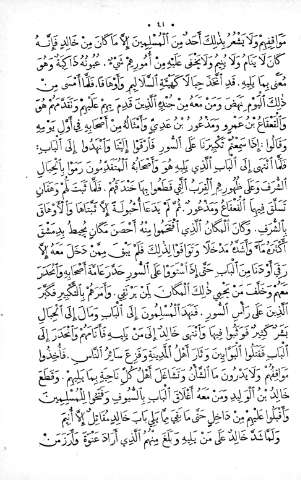 ٤١
مواقفهم ولا يشعر بذلك أحد من المسلمين إلا ما كان من خالد فإنه
كان لا ينام ولا ينيم ولا يخفى عليه من أمورهم شيء. عيونه ذاكية وهو
معنى بما يليه. قد اتخذ حبالا كهيئة السلاليم وأوهاقا. فلما أمسى من
ذلك اليوم نهض ومن معه من جنده الذين قدم بهم عليهم وتقدمهم هو
والقعقاع بن عمرو ومذعور بن عدي وأمثاله من أصحابه في أول يومه
وقالوا: إذا سمعتم تكبيرنا على السور فارقوا إلينا وانهدوا إلى الباب:
فلما انتهى إلى الباب الذي يليه هو وأصحابه المتقدمون رموا بالحبال
الشرف وعلى ظهورهم القرب التي قطعوا بها خندقهم. فلما ثبت لهم وهقان
تسلق فيها القعقاع ومذعور. ثم لم يدعا أحبولة إلا أثبتاها والأوهاق
بالشرف. وكان المكان الذي اقتحموا منه أحصن مكان يحيط بدمشق
أكثره ماء وأشده مدخلا وتوافوا لذلك فلم يبق ممن دخل معه إلا
رقى أو دنا من الباب حتى إذا استووا على السور حدر عامة أصحابه وانحدر
معهم وخلف من يحمي ذلك المكان لمن يرتقي. وأمرهم بالتكبير فكبر
الذين على رأس السور. فنهد المسلمون إلى الباب ومال إلى الحبال
بشر كثير فوثبوا فيها وانتهى خالد إلى من يليه فأنامهم وانحدر إلى
الباب فقتلوا البوابين وثار أهل المدينة وفزع سائر الناس. فأخذوا
مواقفهم ولا يدرون ما الشأن وتشاغل أهل كل ناحية بما يليهم. وقطع
خالد بن الوليد ومن معه أغلاق الباب بالسيوف وفتحوا للمسلمين
وأقبلوا عليهم من داخل حتى ما بقي مما يلي باب خالد مقاتل إلا أنيم
ولما شد خالد على من يليه وبلغ منهم الذي أراد عنوة وأرز من